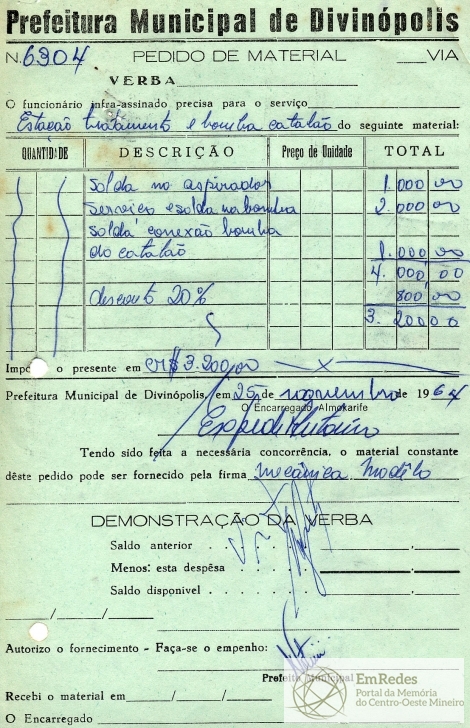 Prefeitura Municipal de Divinópolis
N. 6304 PEDIDO DE MATERIAL ___VIA
VERBA
O funcionário infra-assinado precisa para o serviço
Estação tratamento e bomba catalão do seguinte material:
QUANTIDADE DESCRIÇÃO Preço de Unidade TOTAL
solda no aspirador 1.000 00
serviço e solda na bomba 2.000 00
solda conexão bomba
do catalão 1.000,00
4.000,00
desconto 20% 800 00
3.200 00
Impo o presente em CR$ 3.200,00 x
Prefeitura Municipal de Divinópolis, em 25 de novembro de 1964
O Encarregado Almokarife
Tendo sido feita a necessária concorrência, o material constante
dêste pedido pode ser fornecido pela firma mecânica Modêlo
DEMONSTRAÇÃO DA VERBA
Saldo anterior
Menos: esta despêsa
Saldo disponivel
___/___/___
Autorizo o fornecimento - Faça-se o empenho:
Prefeito Municipal
Recebi o material em ___/___/___
O Encarregado
EmRedes
Portal da Memória
do Centro-Oeste Mineiro